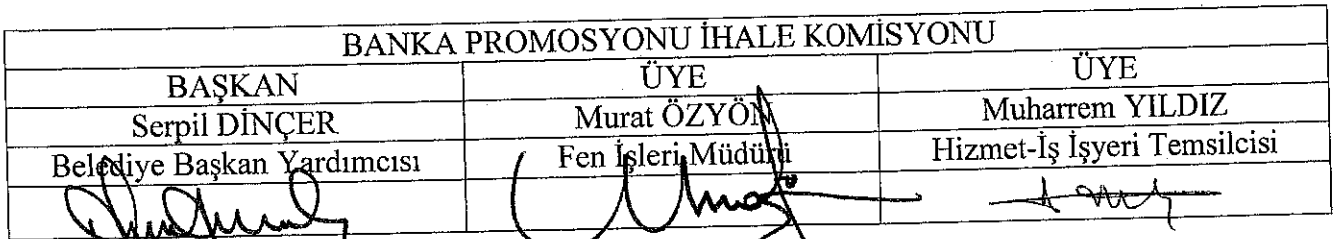 BANKA PROMOSYONU İHALE KOMİSYONU
BAŞKAN ÜYE ÜYE
Serpil DİNÇER Murat ÖZYÖN Muharrem YILDIZ
Belediye Başkan Yardımcısı Fen İşleri Müdürü Hizmet-İş İşyeri Temsilcisi